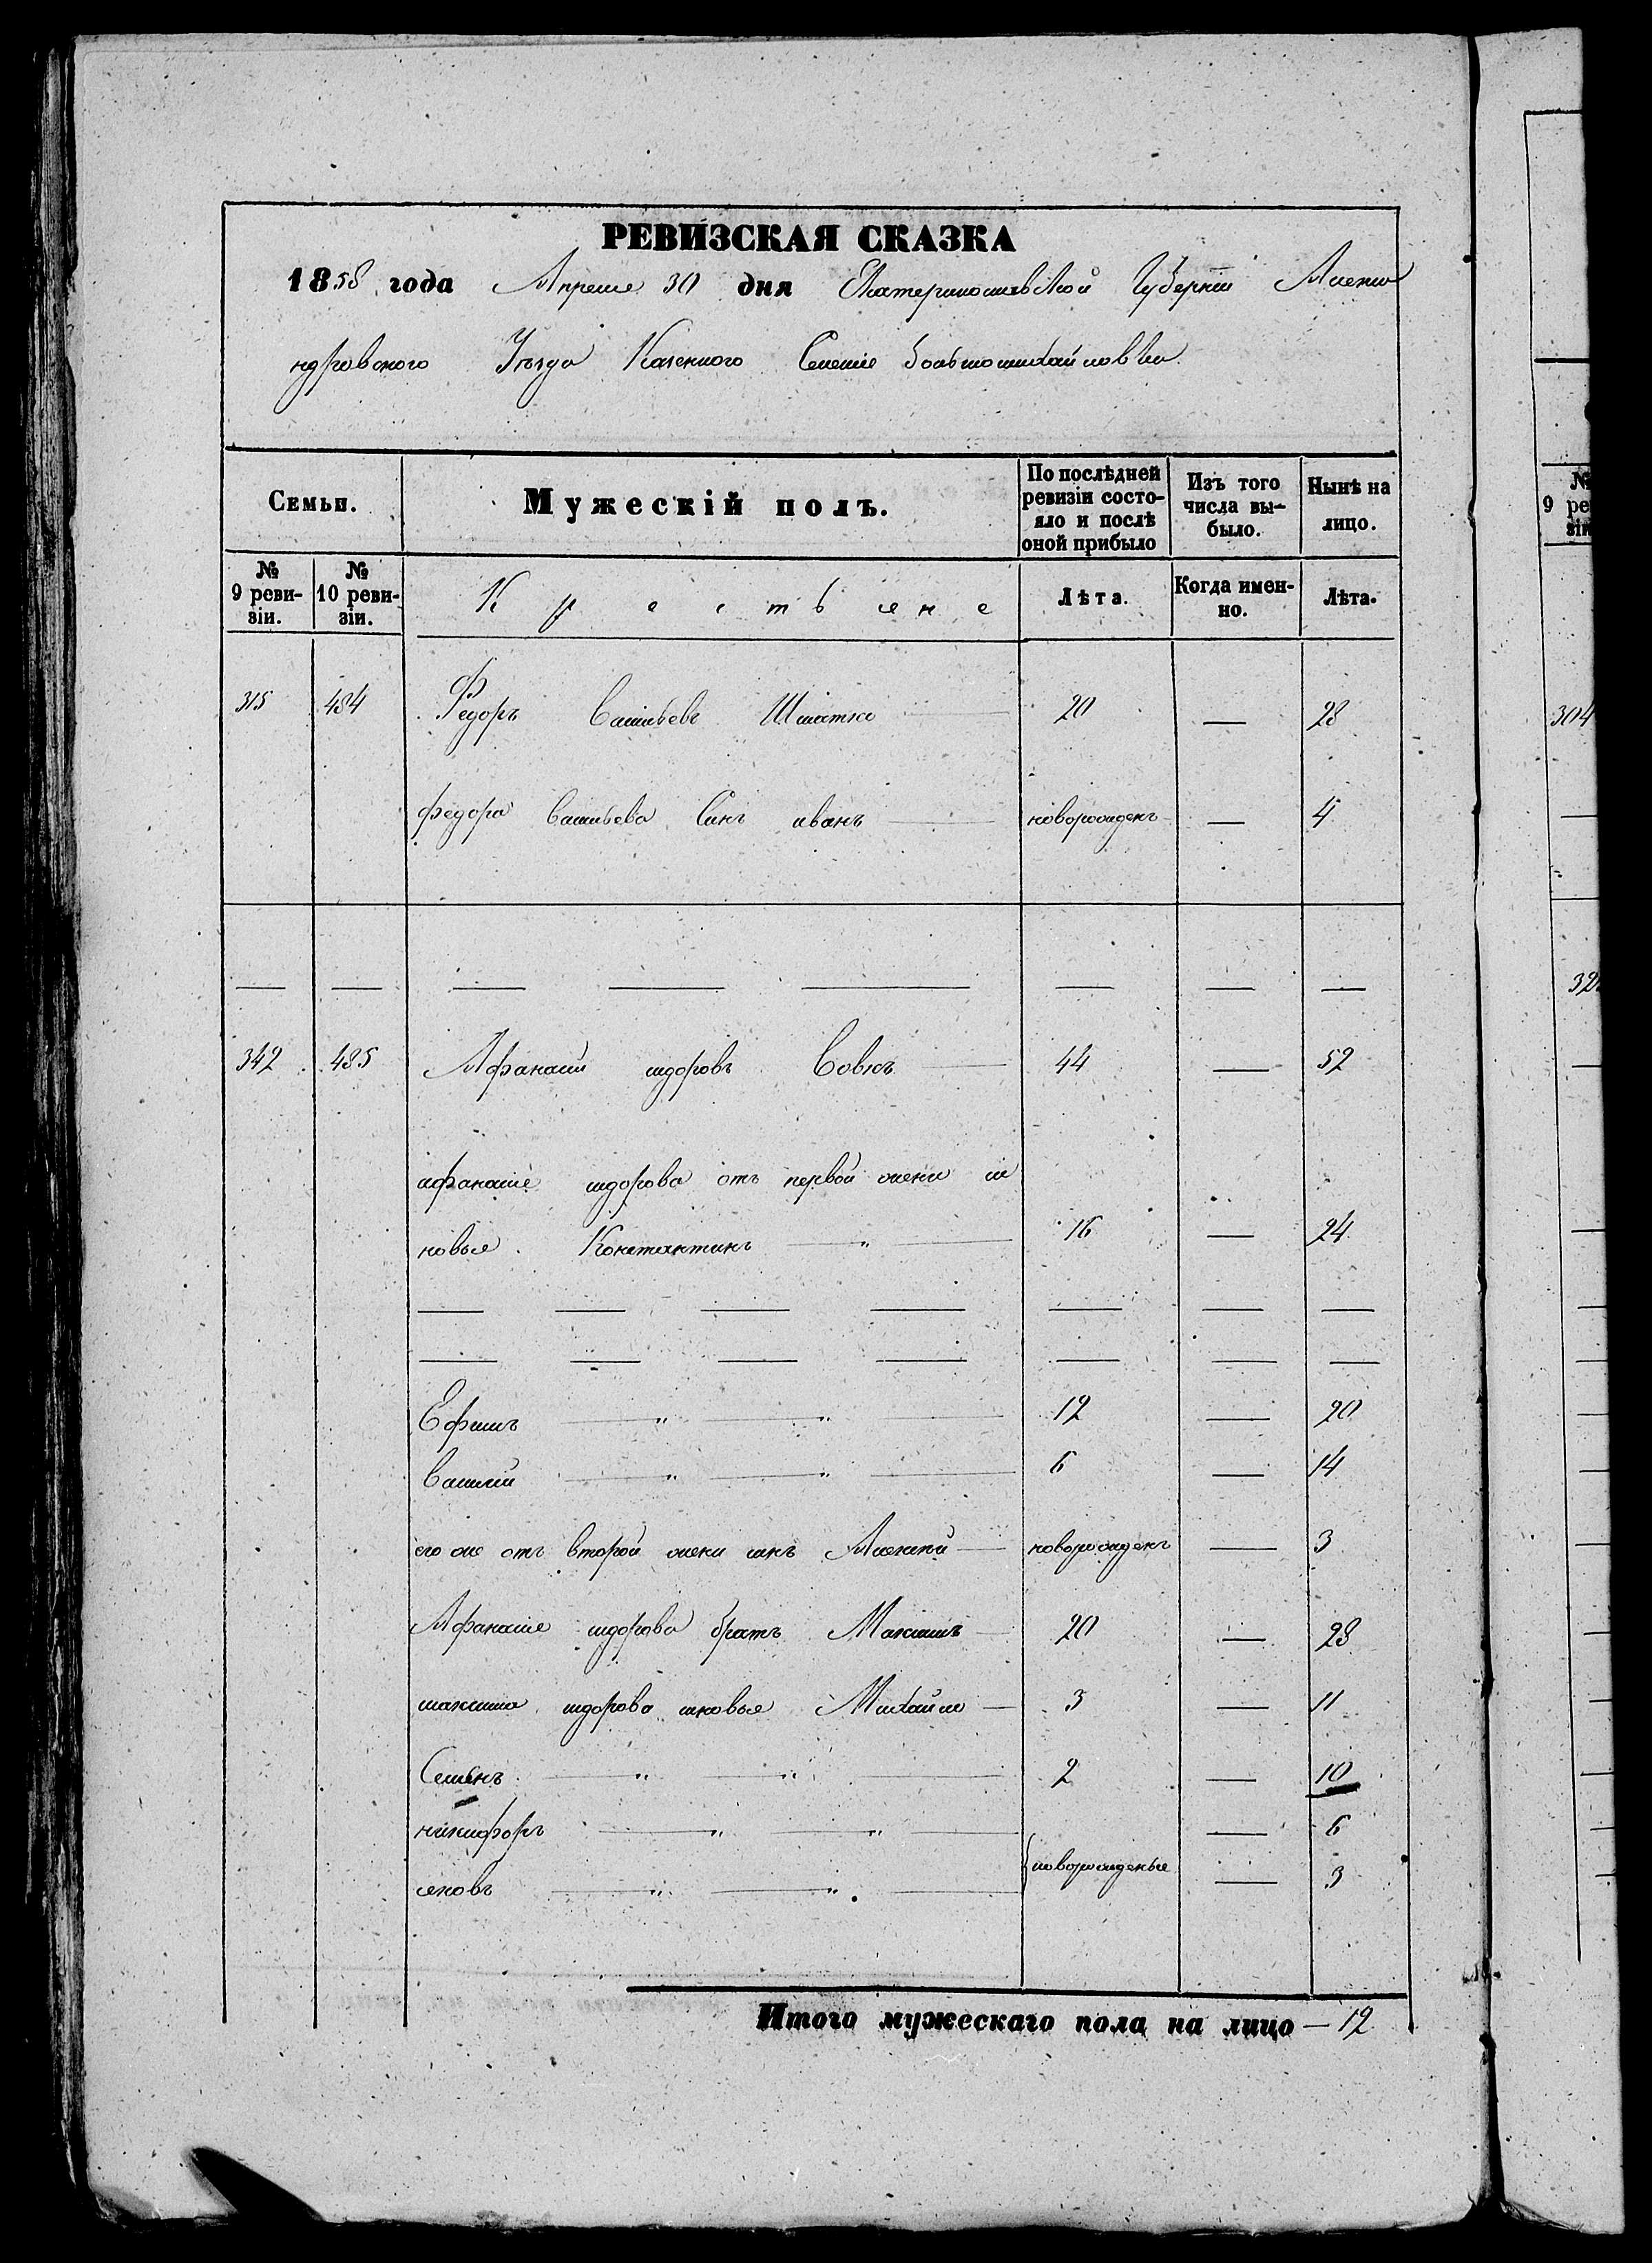 РЕВИЗСКАЯ СКАЗКА
1858 года Апреля 30 дня Екатеринославской Губернии Алекса
ндровского Уезда Казенного Селение большомихайловки
Семьи.
Мужескій полъ.
По послѣдней ревизіи состо-
яло и послѣ оной прибыло
Изъ того числа вы-
было.
Нынѣ на лицо.
№ 9 реви-
зіи.
№ 10 реви-
зіи.
Крестьяне
Лѣта.
Когда имен-
но.
Лѣта.
315 484 Федоръ Васильевъ 20 — 28
федора васильева Синъ иванъ новорожденъ — 4
342 485 Афанасий сидоровъ Вовкъ 44 — 52
афанасие сидорова отъ первой жени си
новья Константинъ " 16 — 24
Ефимъ " " 12 — 20
василий " " 6 — 14
его же отъ второй жени синъ Алексий новорожденъ — 3
Афанасие сидорова братъ Максимъ 20 — 28
максима сидорова синовья Михайло 3 — 11
Семенъ " " 2 — 10
никифоръ " " — 6
новорожденые
яковъ " " — 3
Итого мужескаго пола на лицо — 12
№
9 ре
зіи
304
32